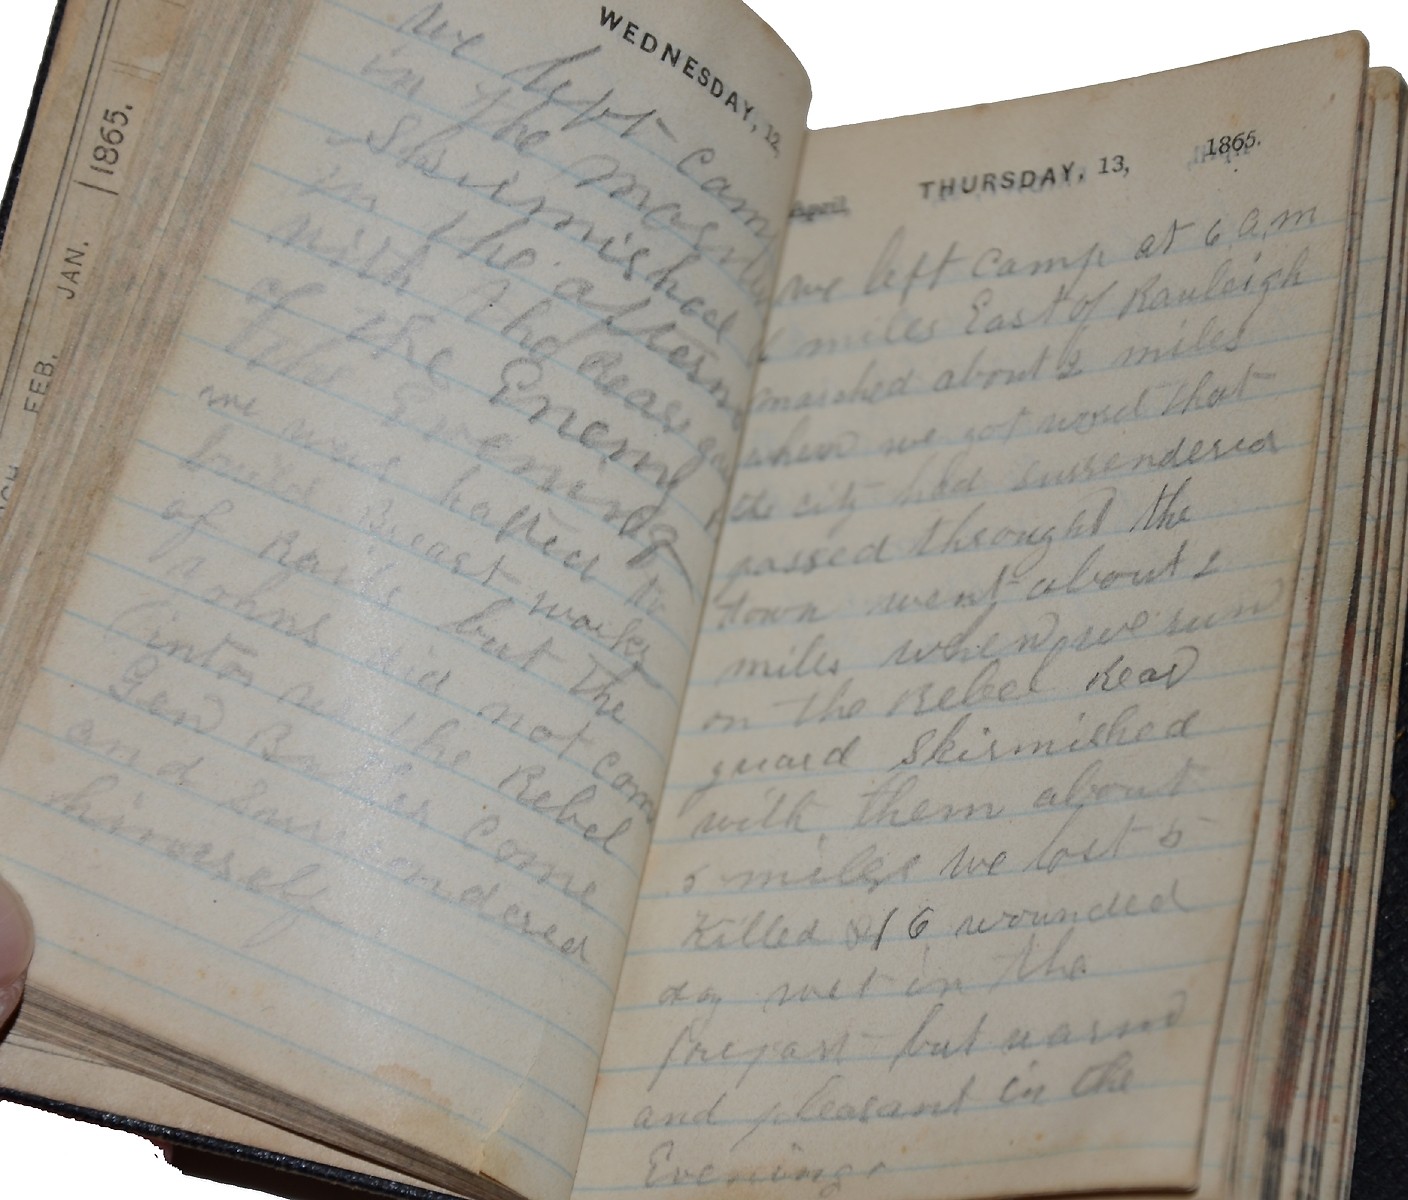 1865.
JAN.
FEB.
WEDNESDAY, 12,
we left Cam
in the
Skirmished
in the aftern
with the rear
of the Enemy
the Evening
we were halted to
build Breast works
of Rails but the
Johns did not com
into us the Rebel
Gen come
and Surrendered
himself
April THURSDAY, 13, 1865.
we left Camp at 6 a,m
miles East of Rauleigh
marched about 2 miles
when we got word that
the city had surrendered
passed throught the
town went about 2
miles when we run
on the Rebel Rear
guard Skirmished
with them about
5 miles we lost 5
Killed & 6 wounded
day wet in the
forepart but warm
and pleasant in the
Evening